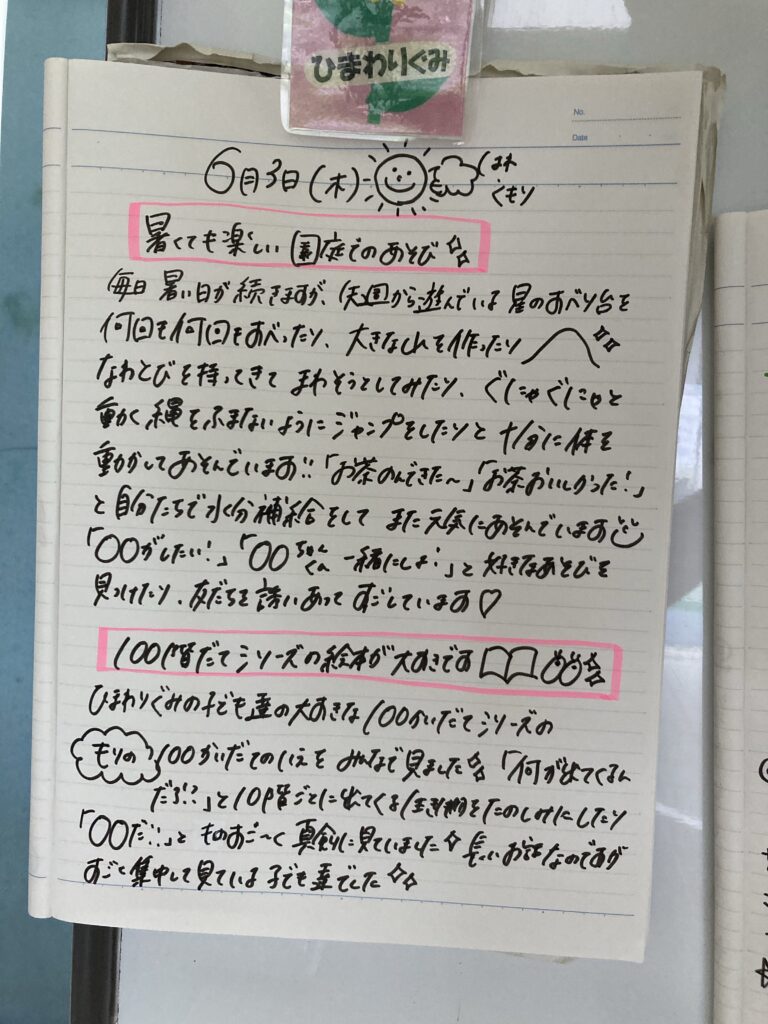 ひまわりぐみ
No.
Date
6月3日(木) はれ くもり
暑くても楽しい 園庭でのあそび
毎日 暑い日が続きますが、先週から遊んでいる 星のすべり台を
何回も何回もすべったり、大きな山を作ったり
なわとびを持ってきて まわそうとしてみたり、ぐにゃぐにゃと
動く縄をふまないように ジャンプをしたりと 十分に体を
動かしてあそんでいます!!「お茶のんできた～」「お茶おいしかった!」
と自分たちで水分補給をして また元気にあそんでいます
「〇〇がしたい!」「〇〇ちゃん くん 一緒にしよ!」と好きなあそびを
見つけたり、友だちを誘いあって すごしています♡
100階だてシリーズの絵本が大すきです
ひまわりぐみの子ども達の大すきな100かいだてシリーズの
もりの 100かいだてのいえを みんなで見ました 「何が出てくるん
だろ!?」と10階ごとに出てくる生き物をたのしみにしたり
「〇〇だ!!」と ものすご～く 真剣に見ていました 長いお話なのですが
すごく集中して見ている 子ども達でした